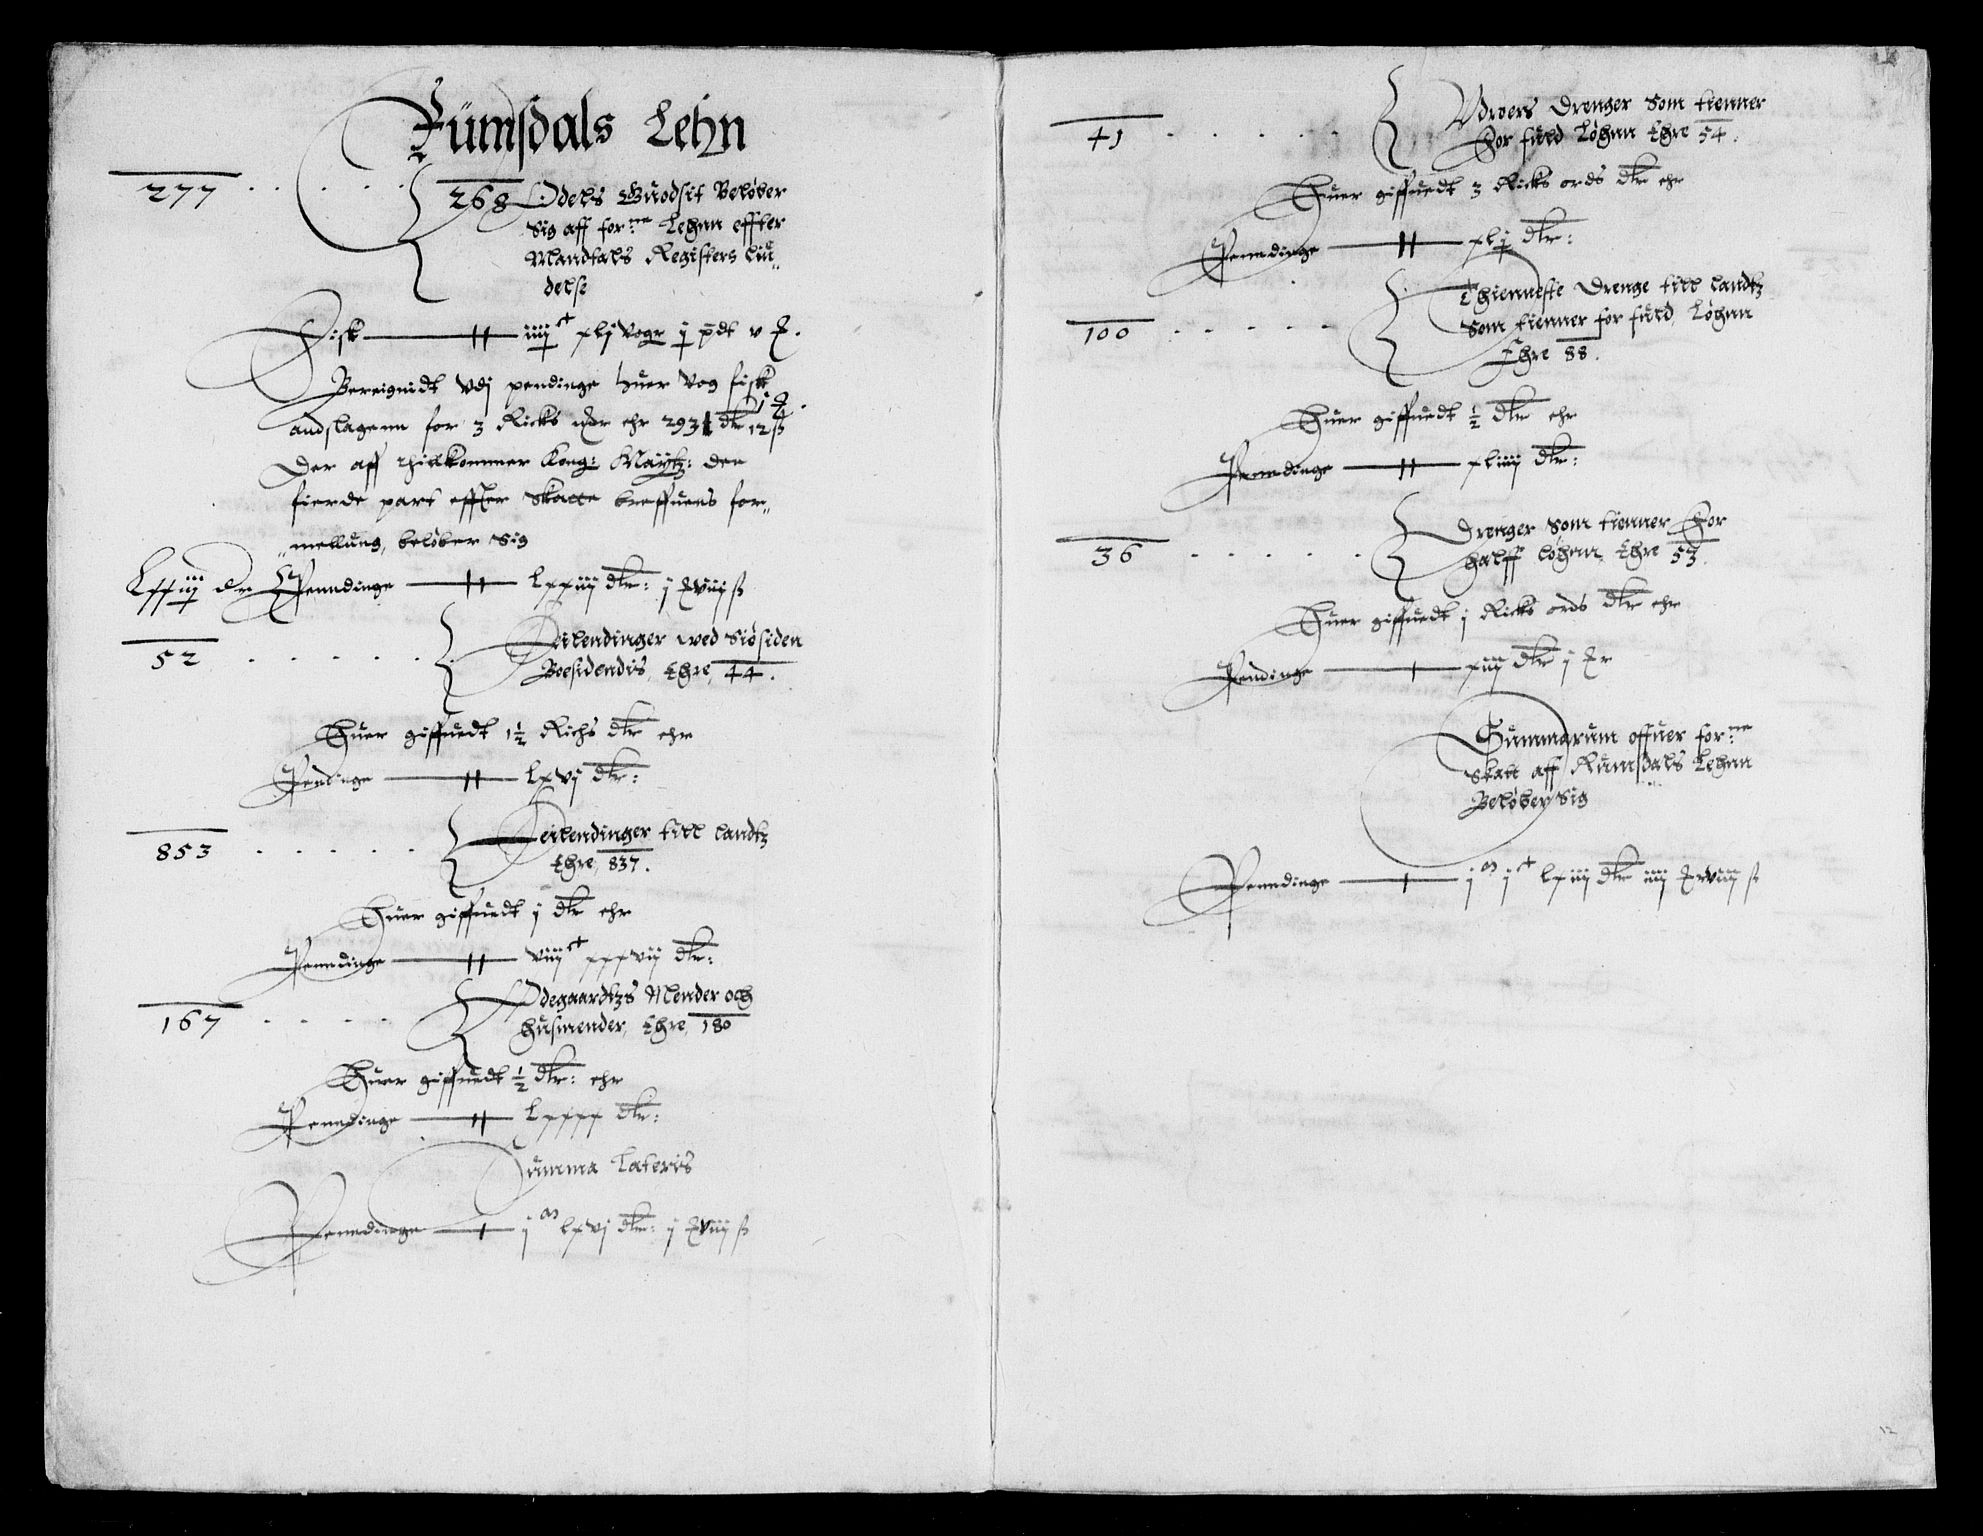 Rumsdals Lehn
277 . . . . . 268 Odels Guodsit Beløber
Sig aff for:ne Lehnn effter
Mandtals Registers liu„
delse
Fisk — iiij c xlj Vogr j pdt v
Bereignidt Vdj pendinge huer Vog fisk
andslagenn for 3 Ricks ehr 293 dlr 1 12 ß
Der aff thillkommer Kong: Maytz: den
fierde part effter Skatte breffuens for„
„mellung, beløber Sig
lxxiij dr Penndinge — lxxiij dlr: j viij ß
52 . . . . . Leilendinger wed Siøsiden
Boesidendis, Ehre, 44.
Huer giffuedt 1½ Richs dlr ehr
Pendinge — lxvj dlr:
853 . . . . . Leilendinger till landtz
Ehre, 837.
Huer giffuedt j dlr ehr
Penndinge — viij c xxxvij dlr:
167 . . . . Ødegaardtzs Mender och
husmender, Ehre, 180
Huer giffuedt ½ dlr: ehr
Penndinge — lxxxx dlr:
Summa Lateris
Penndinge — j m lxvj dlr: j viij ß
41 . . . . . Vdroers Drenger Som tienner
For fuld Løhnn Ehre 54.
Huer giffuedt 3 Ricks ords dlr ehr
Penndinge — xlj dlr:
100 . . . . . Thienneste Drenge till landtz
Som tienner for fuld, Løhnn
Ehre 88.
Huer giffuedt ½ dlr ehr
Penndinge — xliiij dlr:
36 . . . . . Drenger Som tienner For
halff løhnn, Ehre 53.
Huer giffuedt j Ricks ords dlr ehr
Pendinge — xiij dlr j
Summarum offuer for:ne
Skatt aff Rumsdals Lehnn
Beløber Sig
Penndinge — j m j c lxiij dlr iiij viij ß
12